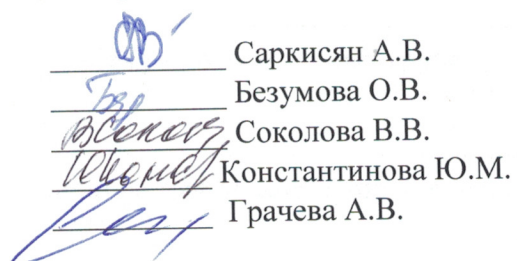 Саркисян А.В.
Безумова О.В.
Соколова В.В.
Константинова Ю.М.
Грачева А.В.